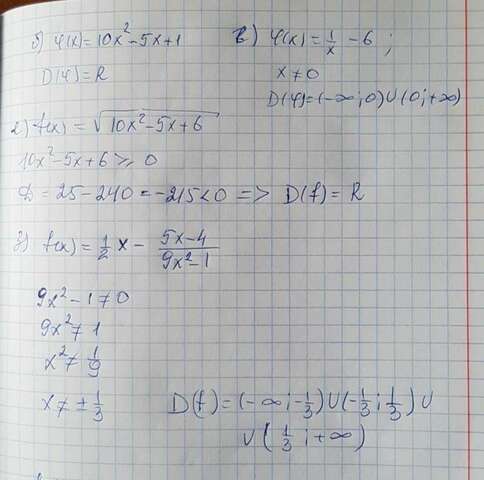 б) φ(x) = 10x² - 5x + 1
D(φ) = R
в) φ(x) = 1/x - 6 ;
x ≠ 0
D(φ) = (-∞; 0) ∪ (0; +∞)
г) f(x) = √(10x² - 5x + 6)
10x² - 5x + 6 ≥ 0
D = 25 - 240 = -215 < 0 => D(f) = R
з) f(x) = 1/2 x - (5x - 4)/(9x² - 1)
9x² - 1 ≠ 0
9x² ≠ 1
x² ≠ 1/9
x ≠ ± 1/3
D(f) = (-∞; -1/3) ∪ (-1/3; 1/3) ∪
∪ (1/3; +∞)